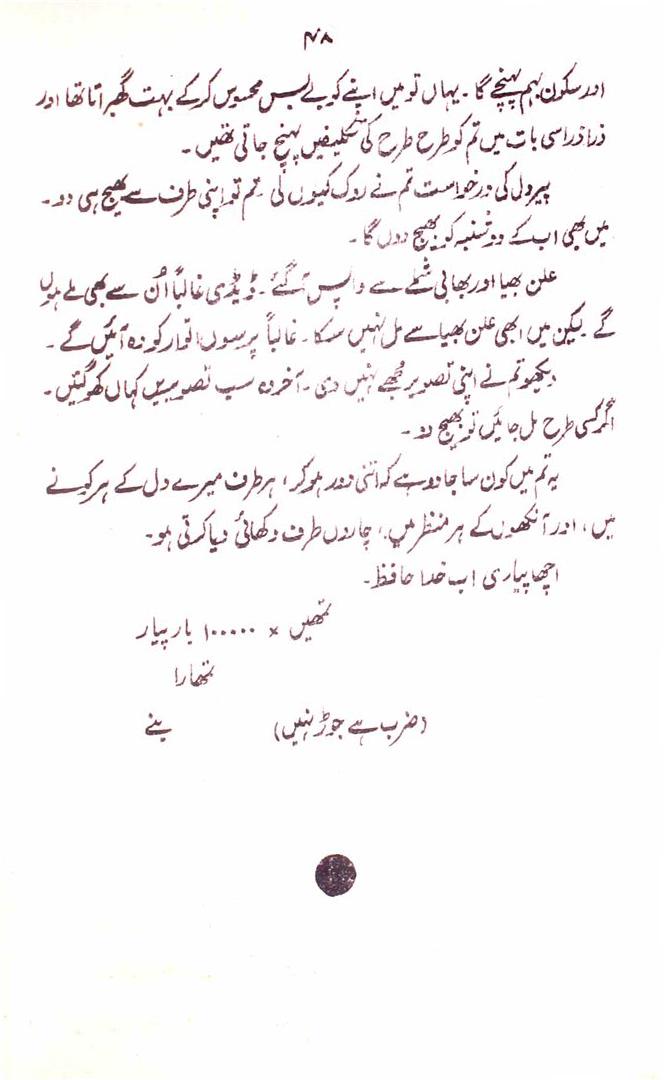 ۴۸
اور سکون بہم پہنچے گا۔ یہاں تو میں اپنے کو بے بس محسوس کرکے بہت گھبراتا تھا اور
ذرا ذرا سی بات میں تم کو طرح طرح کی تکلیفیں پہنچ جاتی تھیں۔
پیرول کی درخواست تم نے روک کیوں لی۔ تم تو اپنی طرف سے بھیج ہی دو۔
میں بھی اب کے دوشنبہ کو بھیج دوں گا۔
علن بھیا اور بھابی شملے سے واپس آگئے۔ ڈیڈی غالباً اُن سے بھی ملے ہوں
گے۔ لیکن میں ابھی علن بھیا سے مل نہیں سکا۔ غالباً پرسوں اتوار کو وہ آئیں گے۔
دیکھو تم نے اپنی تصویر مجھے نہیں دی۔ آخر وہ سب تصویریں کہاں کھو گئیں۔
اگر کسی طرح مل جائیں تو بھیج دو۔
یہ تم میں کون سا جادو ہے کہ اتنی دور ہو کر، ہر طرف میرے دل کے ہر کونے
میں، اور آنکھوں کے ہر منظر میں، چاروں طرف دکھائی دیا کرتی ہو۔
اچھا پیاری اب خدا حافظ۔
تمھیں × ۱۰۰۰۰۰ بار پیار
تمھارا
(ضرب ہے جوڑ نہیں) بنے